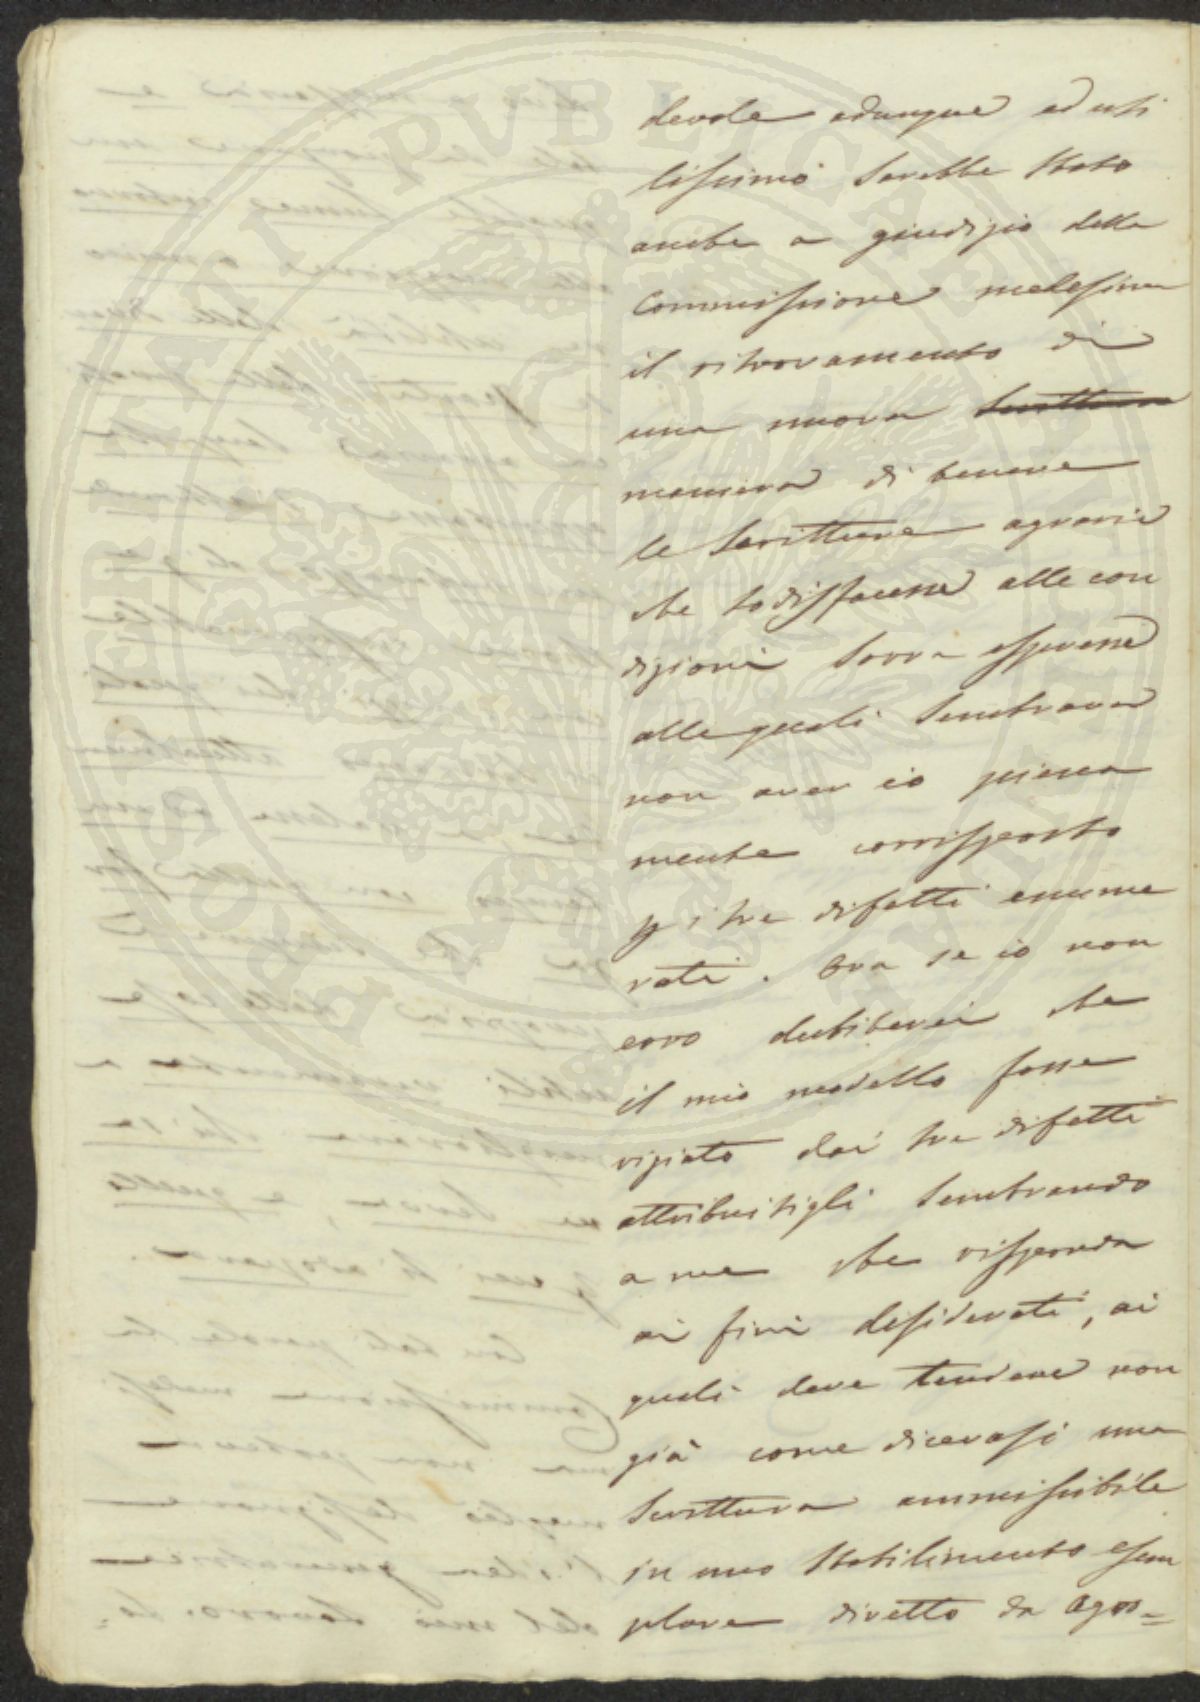 devole adunque ed uti
lissimo sarebbe stato
anche a giudizio della
Commissione medesima
il ritrovamento di
una nuova Scrittura
maniera di tenere
le Scritture agrarie
che sodisfacesse alle con
dizioni sovra espresse
alle quali sembrava
non aver io piena
mente corrisposto
p i tre difetti enume
rati. Ora se io non
erro dubiterei che
il mio modello fosse
viziato dai tre difetti
attribuitigli sembrando
a me che risponda
ai fini desiderati, ai
quali deve tendere non
già come dicevasi una
Scrittura ammissibile
in uno Stabilimento esem
plare diretto da Agro=
PROSPERITATI PVBLICAE AVGENDAE